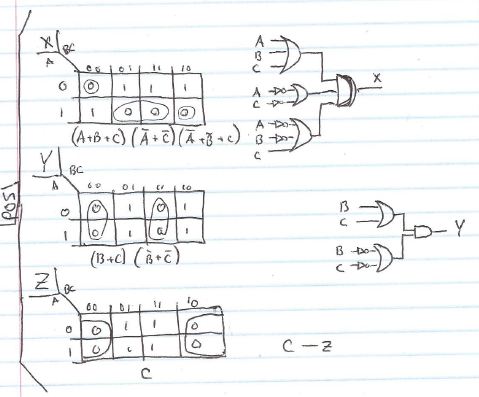 POS
X BC
A 00 01 11 10
0 0 1 1 1
1 1 0 0 0
(A+B+C) (Ā+C̄) (Ā+B̄+C)
A
B
C
A
C
A
B
C
X
Y BC
A 00 01 11 10
0 0 1 0 1
1 0 1 0 1
(B+C) (B̄+C̄)
B
C
B
C
Y
Z BC
A 00 01 11 10
0 0 1 1 0
1 0 1 1 0
C
C – Z